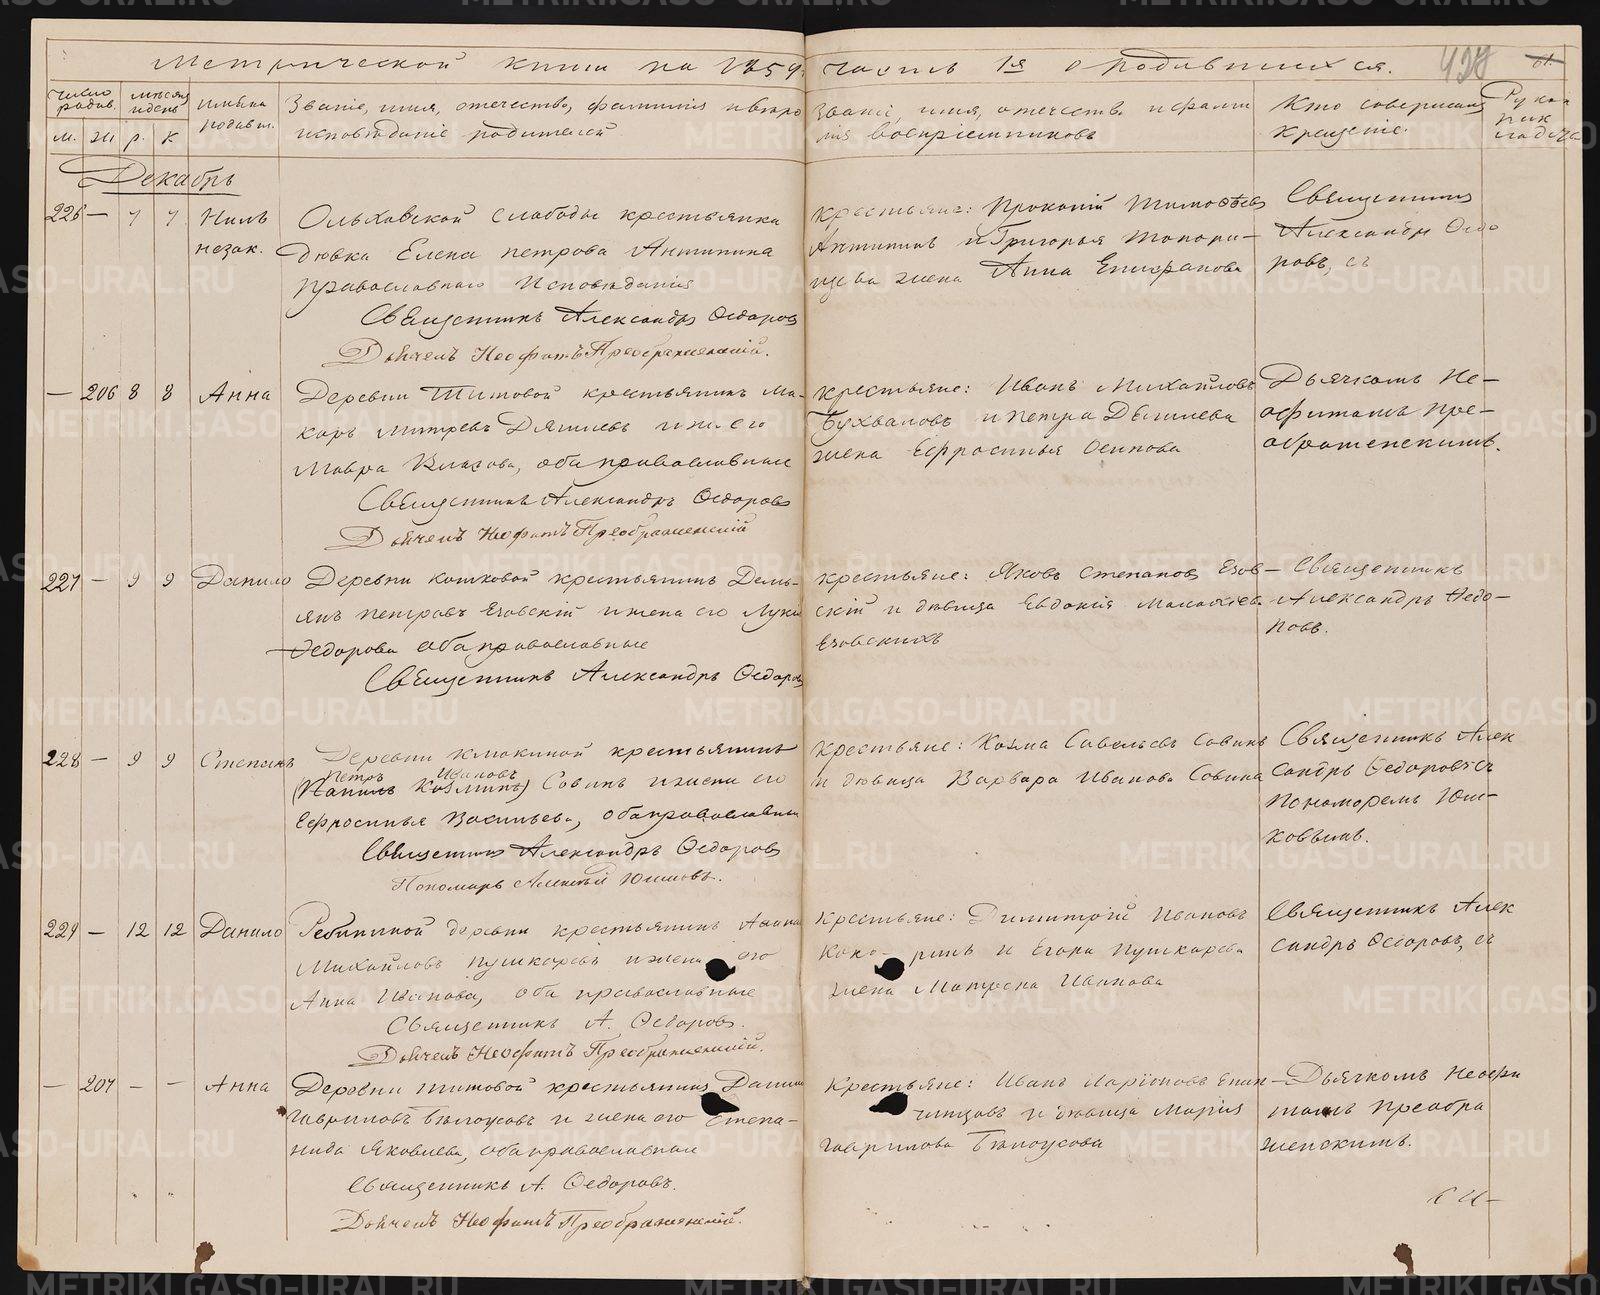 Метрической книги на 1859. часть 1я о родившихся. 428
число родив. месяцъ и день имена родивш.
м. ж. р. к
Званіе, имя, отечество, фамилія и вѣро
исповѣданіе родителей
Званіе, имя, отечеств. и фами
лія воспріемниковъ
Кто совершилъ
крещеніе.
Декабрь
226 — 7 7 Нилъ
незак.
Ольховской слободы крестьянка
дѣвка Елена Петрова Антипина
православнаго исповѣданія
Священникъ Александръ Ѳедоровъ
Дьячекъ Неофитъ Преображенскій.
крестьяне: Прокопій Тимоѳеевъ
Антипинъ и Григорья Топори–
щева жена Анна Епифанова
Священникъ
Александръ Ѳедо
ровъ, съ
— 206 8 8 Анна
Деревни Титовой крестьянинъ Ма–
каръ Митревъ
Мавра Власова, оба православные
Священникъ Александръ Ѳедоровъ
Дьячекъ Неофитъ Преображенскій
крестьяне: Иванъ Михайловъ
Бухваловъ и Петра
жена Ефросинья Осипова
Дьячкомъ Не–
офитомъ Пре–
ображенскимъ.
227 — 9 9 Данило
Деревни Кошковой крестьянинъ Демь–
янъ Петровъ Езовскій и жена его Лукія
Ѳедорова оба православные
Священникъ Александръ Ѳедоровъ
крестьяне: Яковъ Степановъ Езов–
скій и дѣвица Евдокія Малахіева
Езовскихъ
Священникъ
Александръ Ѳедо–
ровъ.
228 — 9 9 Степанъ
Деревни Клюкиной крестьянинъ
Петръ Ивановъ
(Козминъ) Совинъ и жена его
Ефросинья Васильева, оба православны
Священникъ Александръ Ѳедоровъ
Пономарь Алексѣй Юшковъ.
Крестьяне: Козма Савельевъ Совинъ
и дѣвица Варвара Иванова Совина
Священникъ Алек
сандръ Ѳедоровъ съ
Пономоремъ Юш–
ковымъ.
229 — 12 12 Данило
Рябининой деревни крестьянинъ
Михайловъ Пушкаревъ и жена его
Анна Иванова, оба православные
Священникъ А. Ѳедоровъ.
Дьячекъ Неофитъ Преображенскій.
Крестьяне: Димитрій Ивановъ
Коко–ринъ и Егора Пушкарева
жена Матрена Иванова
Священникъ Алек
сандръ Ѳедоровъ, съ
— 207 – – Анна
Деревни Титовой крестьянинъ
Гавриловъ Бѣлоусовъ и жена его Степа–
нида Яковлева, оба православные
Священникъ А. Ѳедоровъ.
Дьячекъ Неофитъ Преображенскій.
Крестьяне: Иванъ Ларіоновъ Епан–
чинцовъ и дѣвица Марія
Гаврилова Бѣлоусова
Дьячкомъ Неофи
томъ Преобра
женскимъ.
METRIKI.GASO-URAL.RU